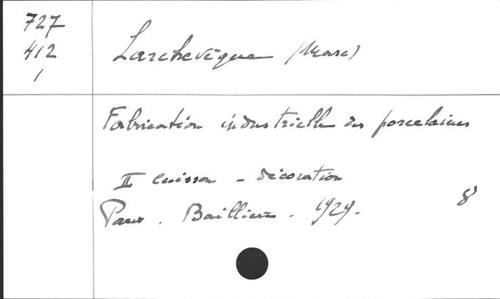 727
412
1
Larchevêque (Marc)
Fabrication industrielle des porcelaines
II cuisson - décoration
Paris. Baillière. 1929. 8°